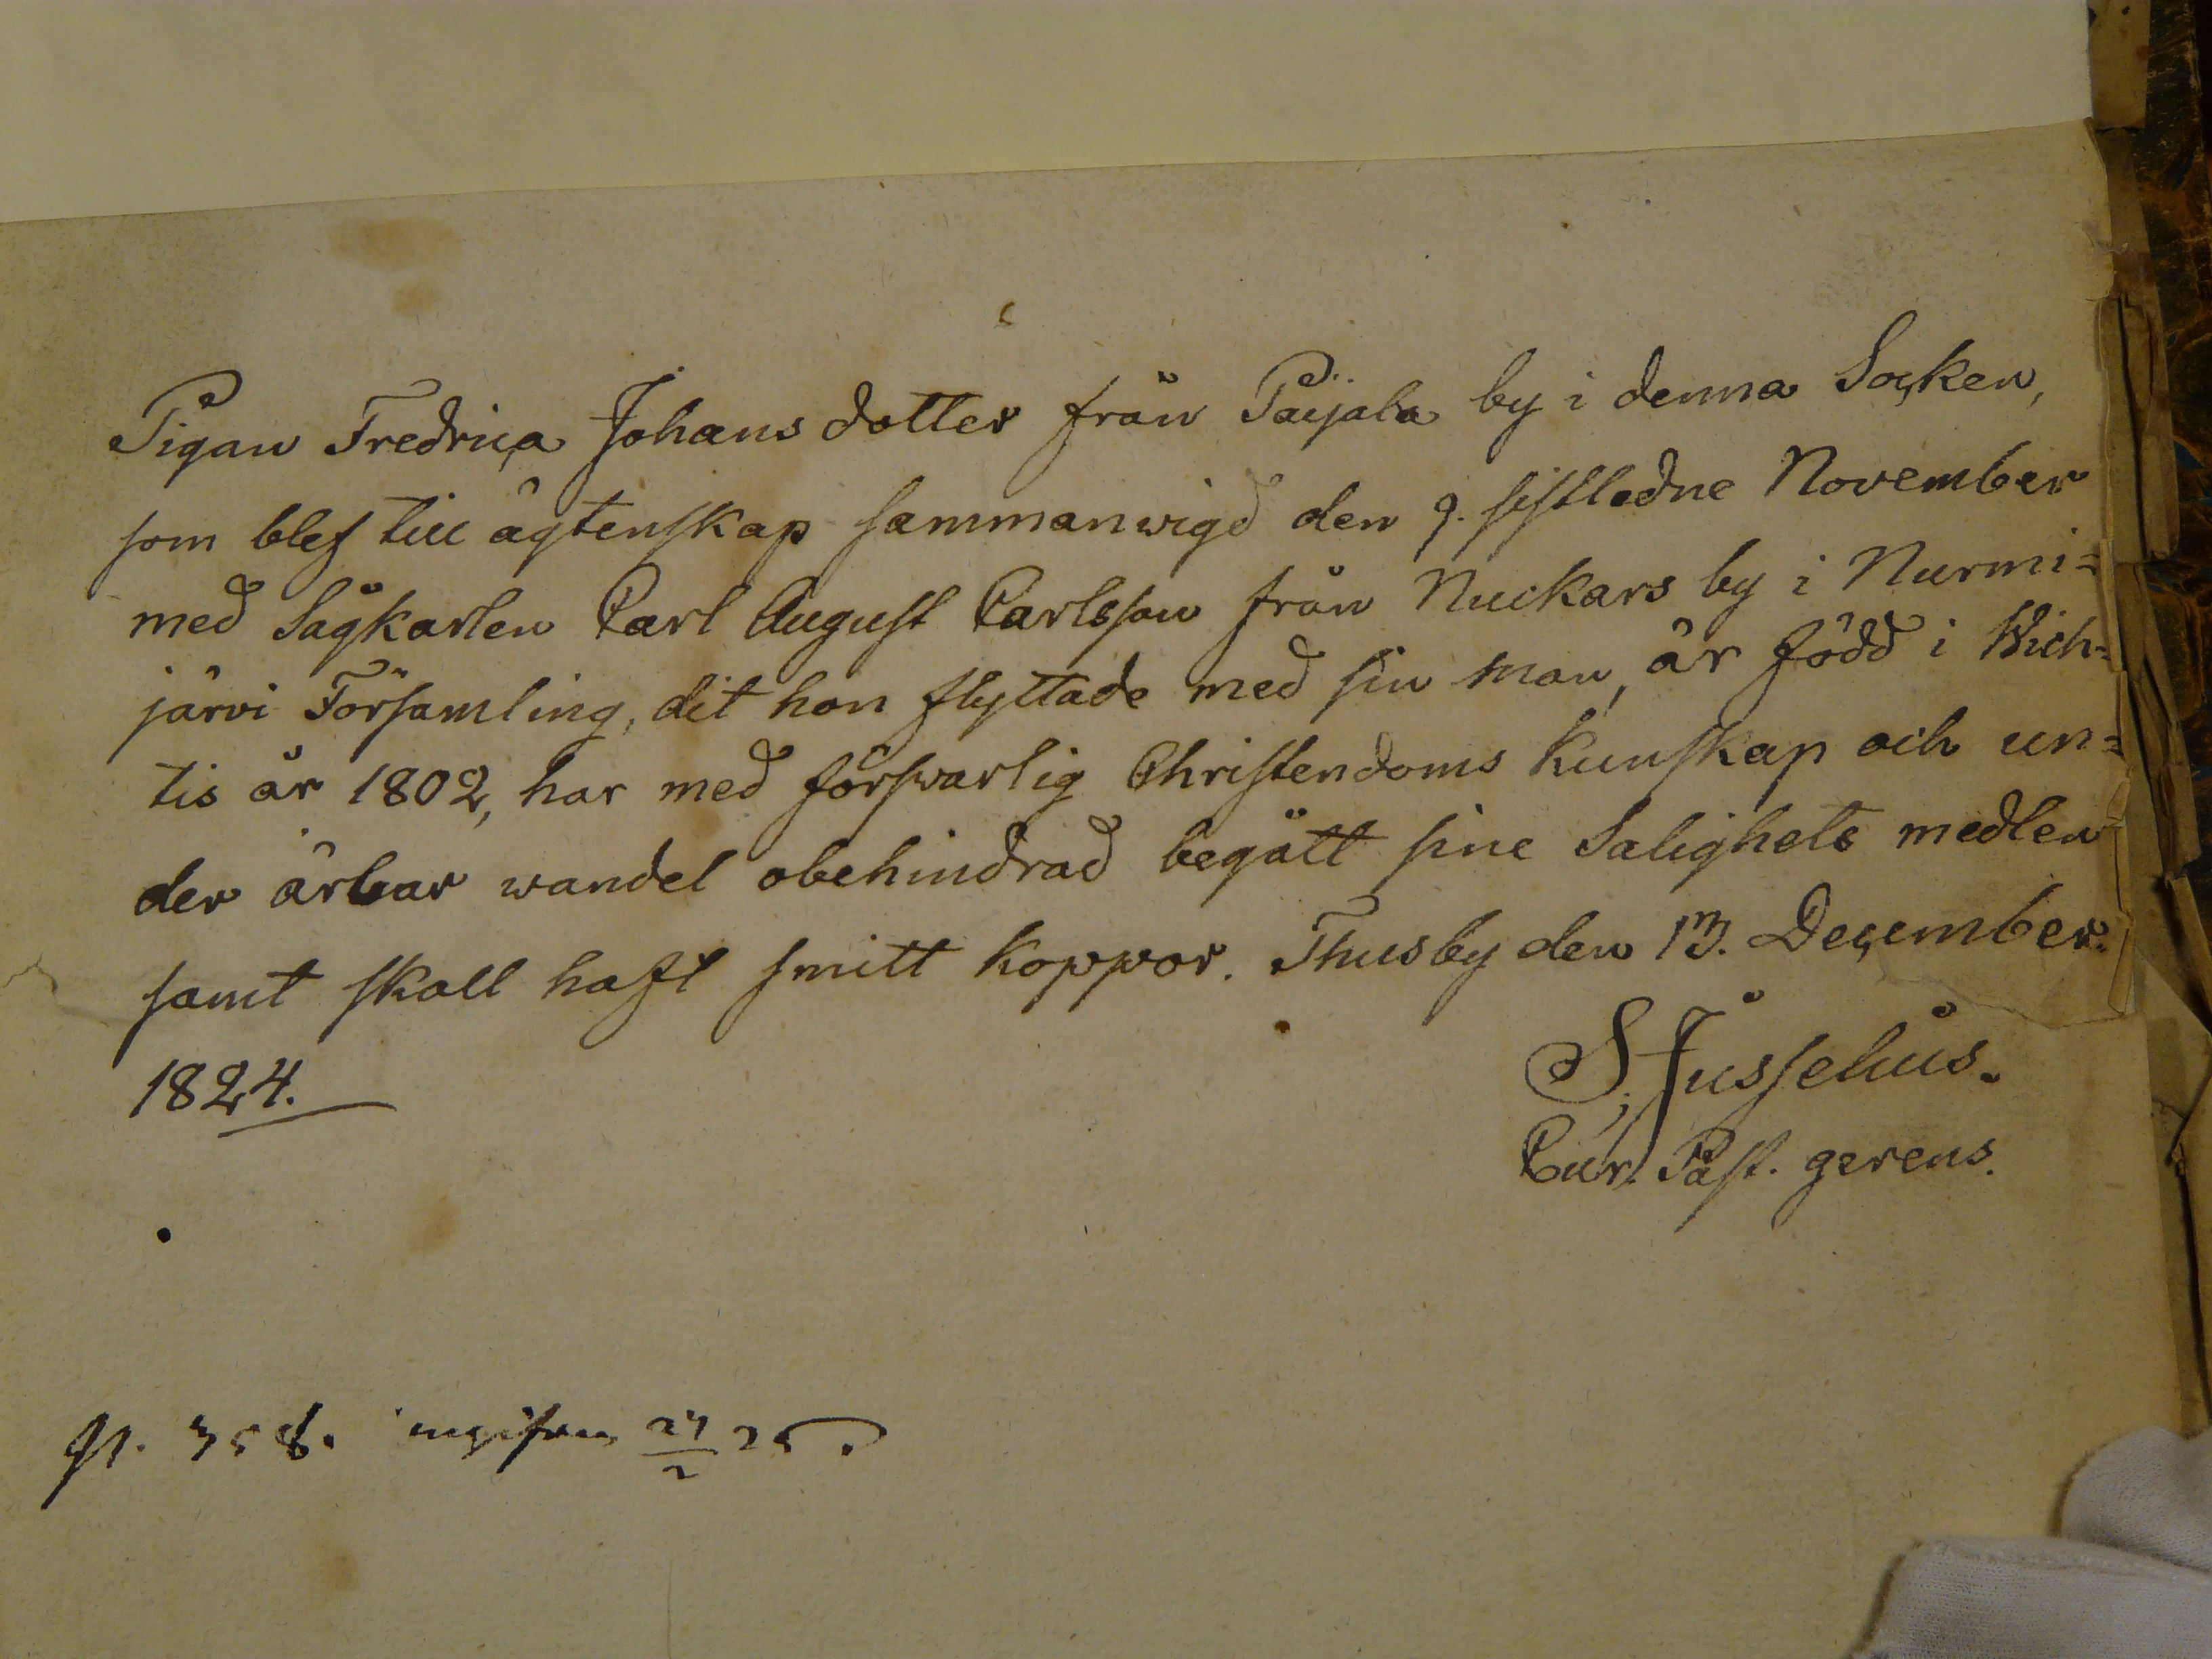 Pigan Fredrica Johansdotter från Paijala by i denna Socken,
som blef till ägtenskap sammanwigd den 9. sistledne November
med Sågkarlen Carl August Carlsson från Nuckars by i Nurmi=
järvi Församling, dit hon flyttade med sin man, är född i Wich=
tis år 1802, har med förswarlig Christendoms kunskap och un=
der ärbar wandel obehindrad begått sine Salighets medlen
samt skall haft smitt koppor. Thusby den 13. December
1824.
S. Jusselius.
Cur. Past. gerens.
p. 358. ingifven 24/2 25.